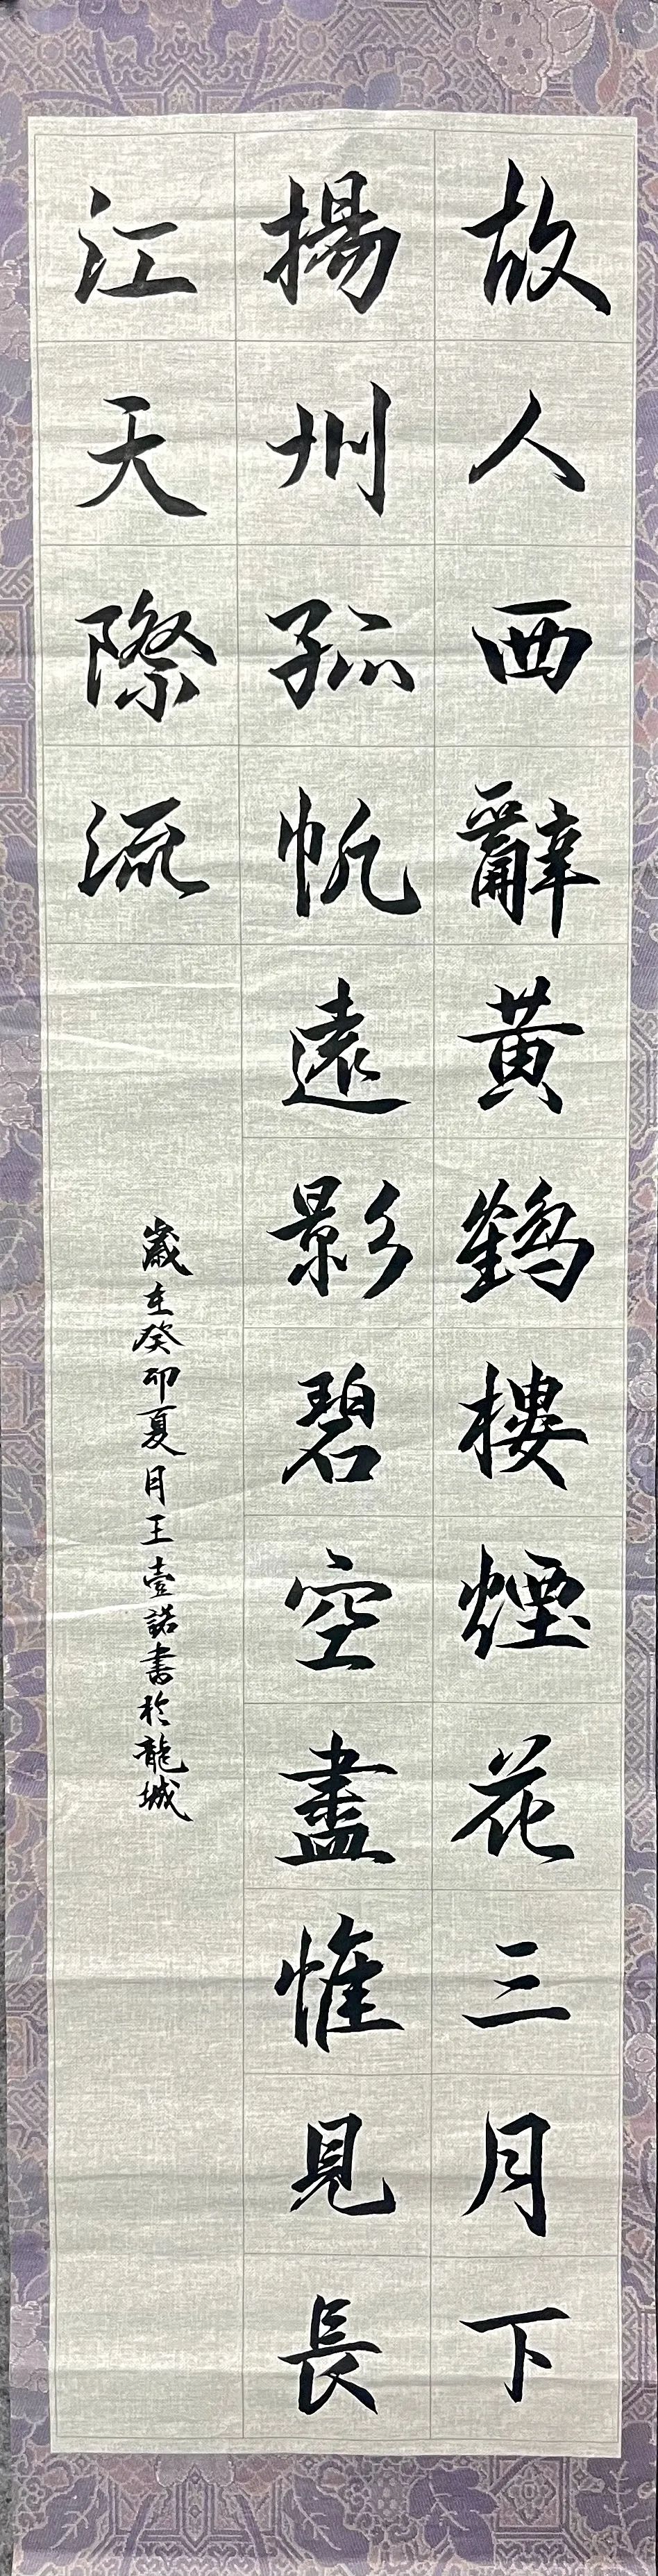 故人西辭黃鶴樓煙花三月下
揚州孤帆遠影碧空盡惟見長
江天際流
歲在癸卯夏月王壹諾書於龍城